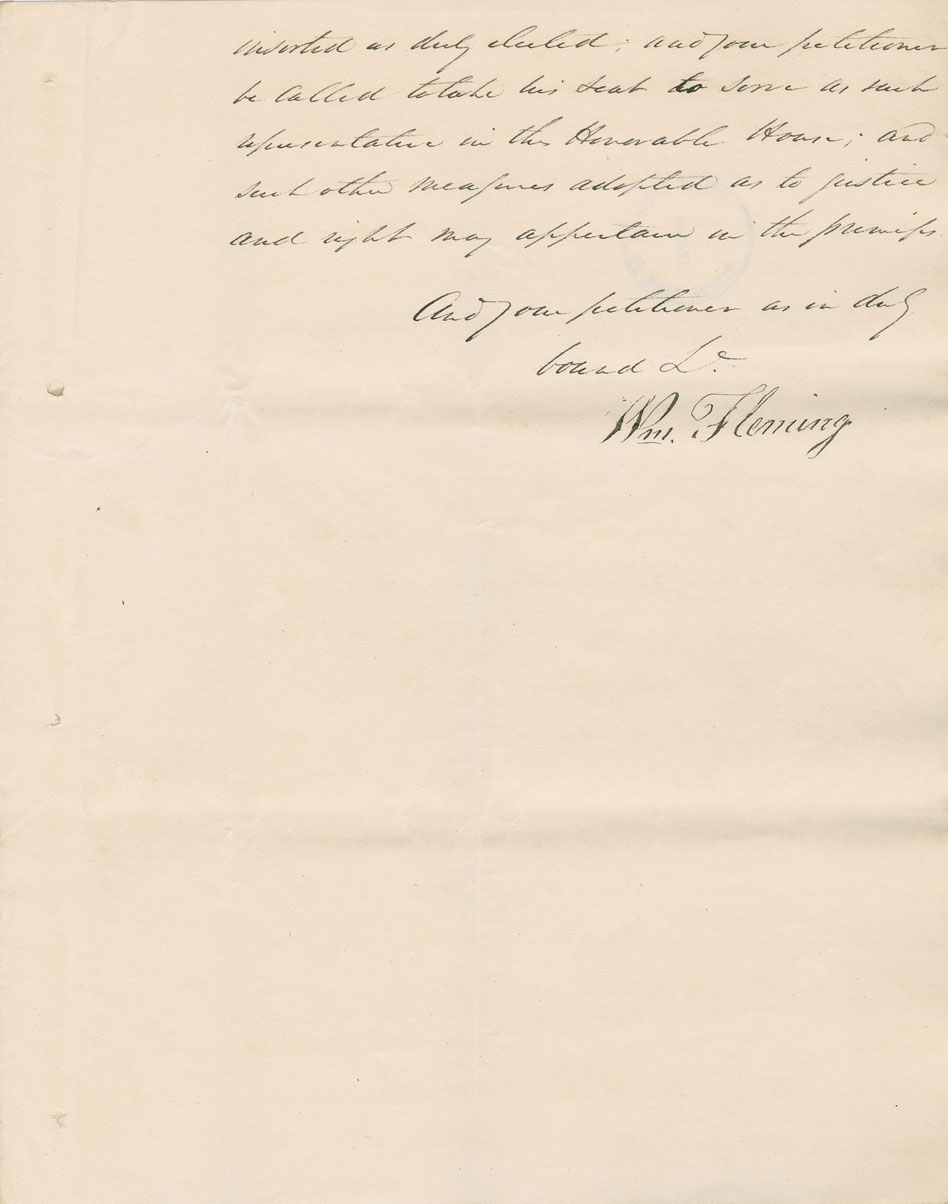 inserted as duly elected; and your petitioner
be called to take his seat to serve as such
representative in this Honorable House; and
such other measures adopted as to justice
and right may appertain in the premises.
And your petitioner as in duty
bound &c.
Wm. Fleming